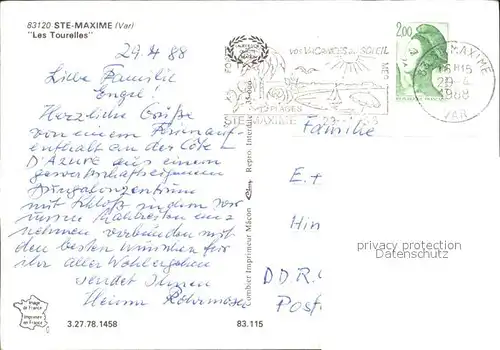 83120 STE-MAXIME (Var)
"Les Tourelles"
29.4 88
Liebe Familie
Engel!
Herzliche Grüße
von einem Ferienauf-
enthalt an der Côte
D'Azure aus einem
gewerkschaftseigenen
Bungalowzentrum
mit Schloß in dem wir
unsere Mahlzeiten ein-
nehmen verbunden mit
den besten Wünschen für
ihr aller Wohlergehen
sendet Ihnen
VOS VACANCES AU SOLEIL
MER
PLAGES
STE MAXIME
2,00
STE MAXIME
16 H15
29-4
1988
VAR
Familie
E. +
Hin
D.D.R.
Post
privacy protection
Datenschutz
Combier Imprimeur Mâcon
Repro. Interdite
Image
de France
Imprimée
en France
3.27.78.1458
83.115